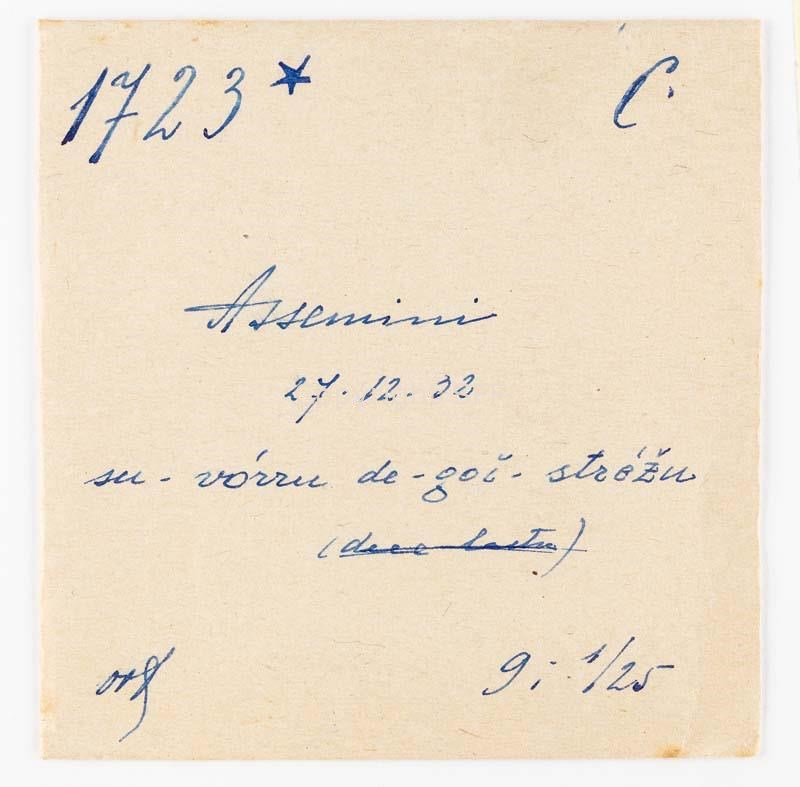 1723* C.
Assemini
27.12.32
su-vórru de-goč-stréžu
9: 1/25